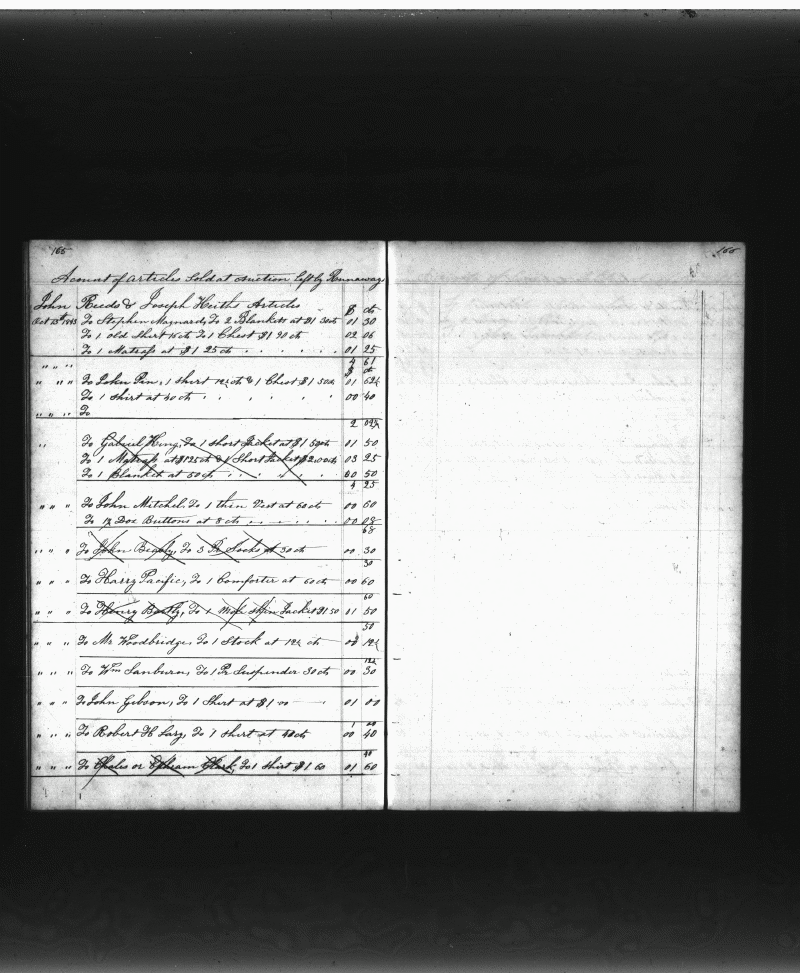 166
Acount of Articles Sold at Auction left by Runaways
John Reeds & Joseph Keiths Articles $ cts
Oct 13th 1843 To Stephen Maynards, To 2 Blankets at $1 30cts 01 30
To 1 Old Shirt cts To 1 Chest $1 90 cts 02 06
To 1 Matrass at $1 25 cts 01 25
" " " 4 61
$ cts
" " " To John Pen, 1 Shirt 12½ cts & 1 Chest $1 50cts 01 62½
To 1 Shirt at 40 cts 00 40
" " " To
2 02½
" To Gabriel King, To 1 Short Jacket at $1 50cts 01 50
To 1 Matrass at $1 25 cts & 1 Short Jacket $2.00cts 03 25
To 1 Blanket at 50 cts 00 50
4 25
" " " To John Mitchel, To 1 thin Vest at 60 cts 00 60
To 12 Doz Buttons at 8 cts 00 08
68
" " " To John To 3 Pr Socks at 30 cts 00 30
30
" " " To Harry Pacific, To 1 Comforter at 60 cts 00 60
60
" " " To Henry To 1 Skin Jacket $1 50 01 50
50
" " " To Mr Woodbridge, To 1 Stock at 12½ cts 00 12½
12½
" " " To Wm Sanburn, To 1 Pr Suspender 30 cts 00 30
" " " To John Gibson, To 1 Shirt at $1 00 01 00
1 00
" " " To Robert H Lary, To 1 Shirt at 40 cts 00 40
40
" " " To or Ephraim Clark, To 1 Shirt $1.60 01 60
166